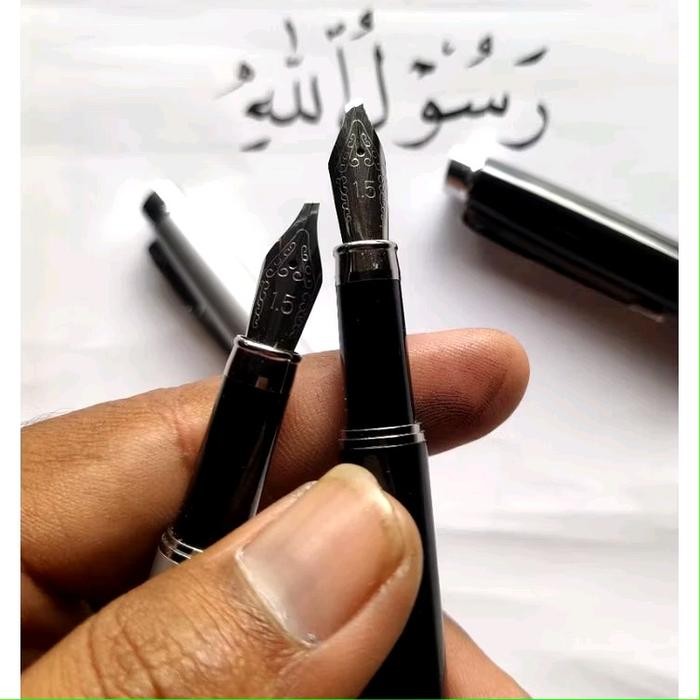 رَسُوْلُ اللّٰهُ
1.5
1.5